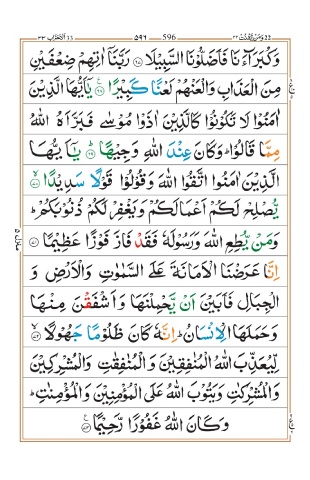 ومن يقنت ٢٢ 596 ٥٩٦ الاحزاب ٣٣
وَكُبَرَآءَنَا فَاَضَلُّوْنَا السَّبِيْلَا ﴿۶۷﴾ رَبَّنَآ اٰتِهِمْ ضِعْفَيْنِ
مِنَ الْعَذَابِ وَالْعَنْهُمْ لَعْنًا كَبِيْرًا ﴿۶۸﴾ يٰٓاَيُّهَا الَّذِيْنَ
اٰمَنُوْا لَا تَكُوْنُوْا كَالَّذِيْنَ اٰذَوْا مُوْسٰى فَبَرَّاَهُ اللّٰهُ
مِمَّا قَالُوْا ؕ وَكَانَ عِنْدَ اللّٰهِ وَجِيْهًا ﴿۶۹﴾ يٰٓاَيُّهَا
الَّذِيْنَ اٰمَنُوا اتَّقُوا اللّٰهَ وَقُوْلُوْا قَوْلًا سَدِيْدًا ﴿۷۰﴾
يُّصْلِحْ لَكُمْ اَعْمَالَكُمْ وَيَغْفِرْ لَكُمْ ذُنُوْبَكُمْ ؕ
وَمَنْ يُّطِعِ اللّٰهَ وَرَسُوْلَهٗ فَقَدْ فَازَ فَوْزًا عَظِيْمًا ﴿۷۱﴾
اِنَّا عَرَضْنَا الْاَمَانَةَ عَلَى السَّمٰوٰتِ وَالْاَرْضِ وَ
الْجِبَالِ فَاَبَيْنَ اَنْ يَّحْمِلْنَهَا وَاَشْفَقْنَ مِنْهَا
وَحَمَلَهَا الْاِنْسَانُ ؕ اِنَّهٗ كَانَ ظَلُوْمًا جَهُوْلًا ﴿۷۲﴾
لِّيُعَذِّبَ اللّٰهُ الْمُنٰفِقِيْنَ وَالْمُنٰفِقٰتِ وَالْمُشْرِكِيْنَ
وَالْمُشْرِكٰتِ وَيَتُوْبَ اللّٰهُ عَلَى الْمُؤْمِنِيْنَ وَالْمُؤْمِنٰتِ ؕ
وَكَانَ اللّٰهُ غَفُوْرًا رَّحِيْمًا ﴿۷۳﴾